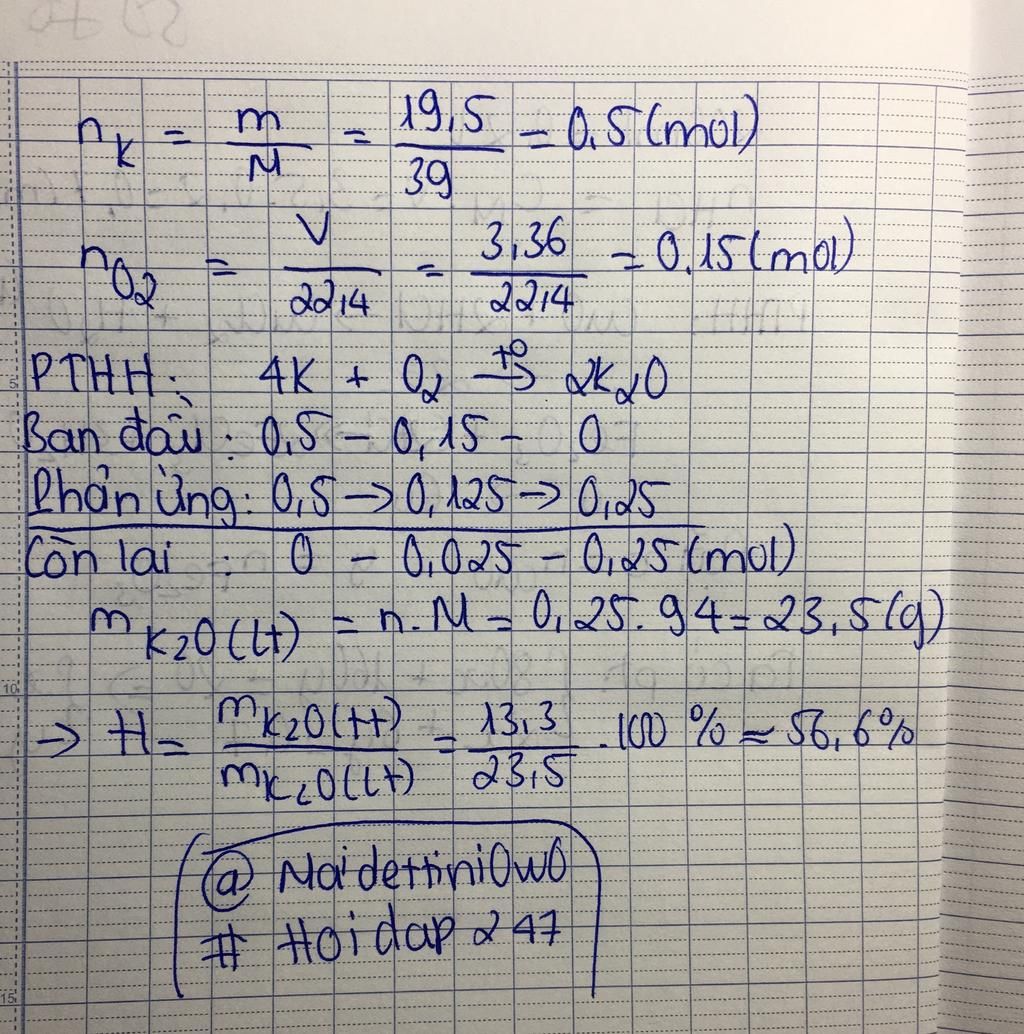 n_K = m/M = 19,5/39 = 0,5 (mol)
n_O2 = V/22,4 = 3,36/22,4 = 0,15 (mol)
PTHH: 4K + O2 t0→ 2K2O
Ban đầu: 0,5 - 0,15 - 0
Phản ứng: 0,5 → 0,125 → 0,25
Còn lại : 0 - 0,025 - 0,25 (mol)
m_K2O (Lt) = n.M = 0,25.94 = 23,5 (g)
→ H = m_K2O (tt)/m_K2O (Lt) = 13,3/23,5 .100 % ≈ 56,6%
@ NaidettiniOwO
# Hoidap247
5
10
15